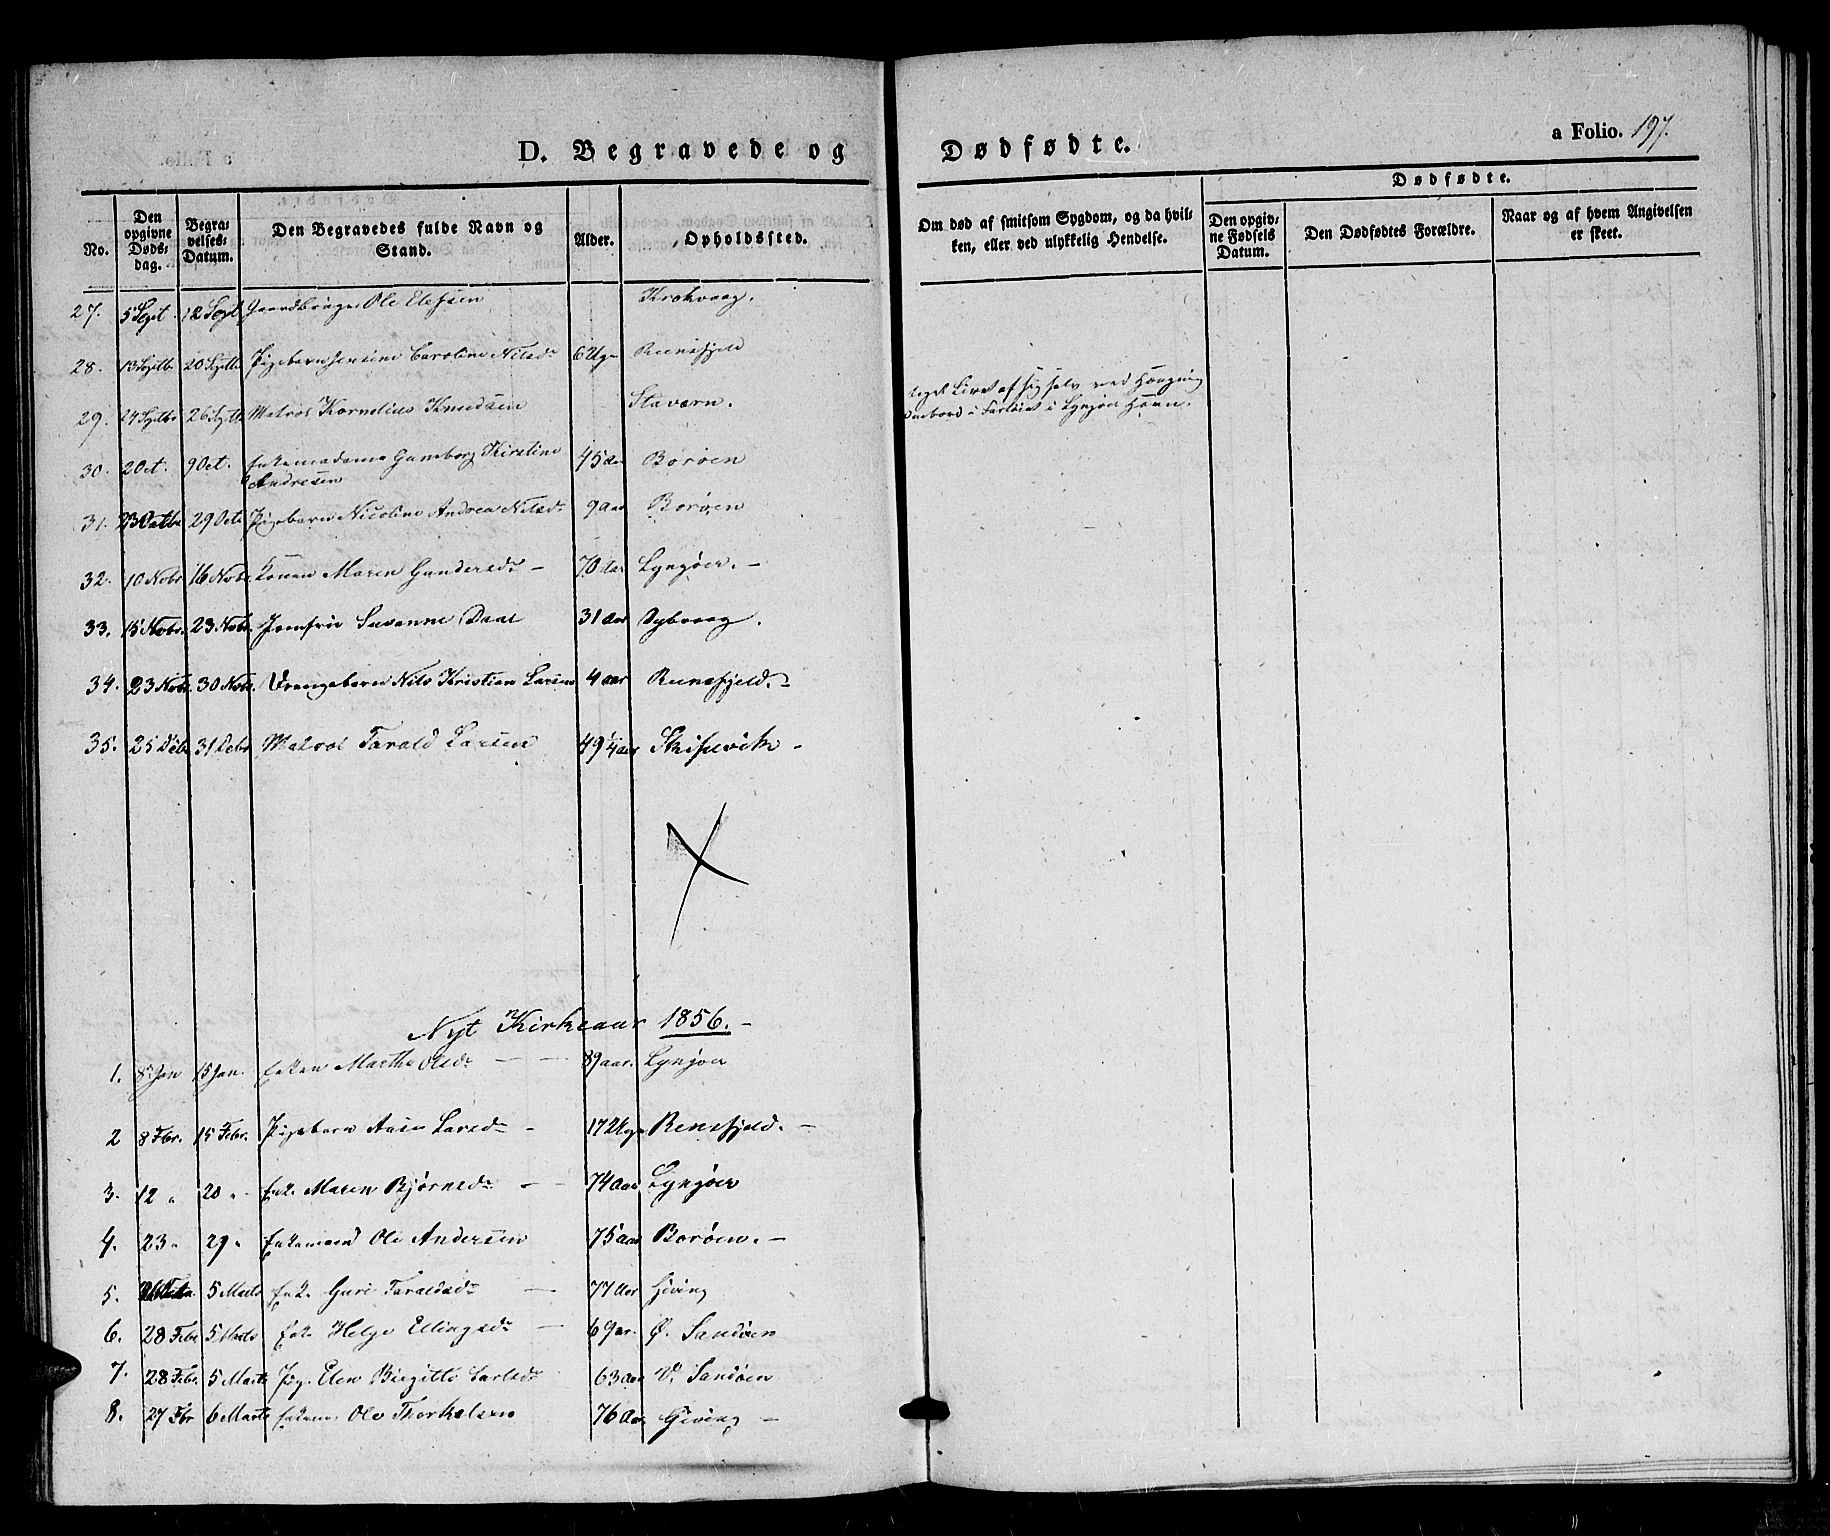 D. Begravede og Dødfødte.
a Folio. 197.
No.
Den opgivne Døds-dag.
Begra-velses-Datum.
Den Begravedes fulde Navn og Stand.
Alder.
Opholdssted.
Om død af smitsom Sygdom, og da hvil-ken, eller ved ulykkelig Hendelse.
Dødfødte.
Den opgiv-ne Fødsels Datum.
Den Dødfødtes Forældre.
Naar og af hvem Angivelsen er skeet.
27. 5 Sept 12 Sept Gaardbruger Ole Krokvaag.
28. 13 Septbr 20 Septbr Pigebarn Jensine Caroline Nilsdr 6 Uger Reensfjeld
29. 24 Septbr 26 Septbr Matros Kornelius Knudsen Stavern. taget Livet af sig selv ved Hængning ombord i Fartøiet i Lyngøer Havn.
30. 2 Oct. 9 Oct. Enkemadame Gumborg Kirstine Andresen 45 aar Borøen
31. 23 Octbr 29 Octb Pigebarn Nicoline Andrea Nilsdr 9 aar Borøen
32. 10 Nobr 16 Nobr Konen Maren Gundersdr – 70 Aar Lyngøer. –
33. 15 Nobr. 23 Nobr. Jomfru Susanne Daae 31 Aar Dybvaag.
34. 23 Nobr. 30 Nobr. Drengebarn Nils Kristian Larsen 4 aar Reensfjeld. –
35. 25 Debr 31 Debr Matros Tarald Larsen 49 1/4 aar Skifsevik –
Nyt Kirkeaar 1856. –
1. 8 Jan 15 Jan. Enken Marthe Olsdr – – 89 aar. Lyngøer
2 8 Fbr. 15 Febr. Pigebarn Aase Larsdr – 17 Uger Rensfjeld. –
3. 12 " 20 " Enke Maren Bjørnsdr – – 74 Aar Lyngøer
4. 23 " 29 " Enkemand Ole Andersen 75 aar Borøen. –
5. 5 Marts Enke Guri Taraldsdr – 77 Aar Giving
6. 28 Febr 5 Marts Enke Helge Ellingsdr – 69 ar. Ø. Sandøen
7. 28 Febr. 5 Marts Pig. Elen Birgitte Larsdr 63 aar V. Sandøen
8. 27 Fbr 6 Marts Enkem. Ole Thorkelsen 76 Aar Giving –